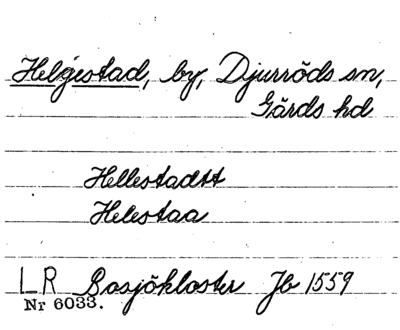 Helgestad, by, Djurröds sn,
Gärds hd
Hellestadtt
Helestaa
LR Bosjökloster Jb 1559
Nr 6033.